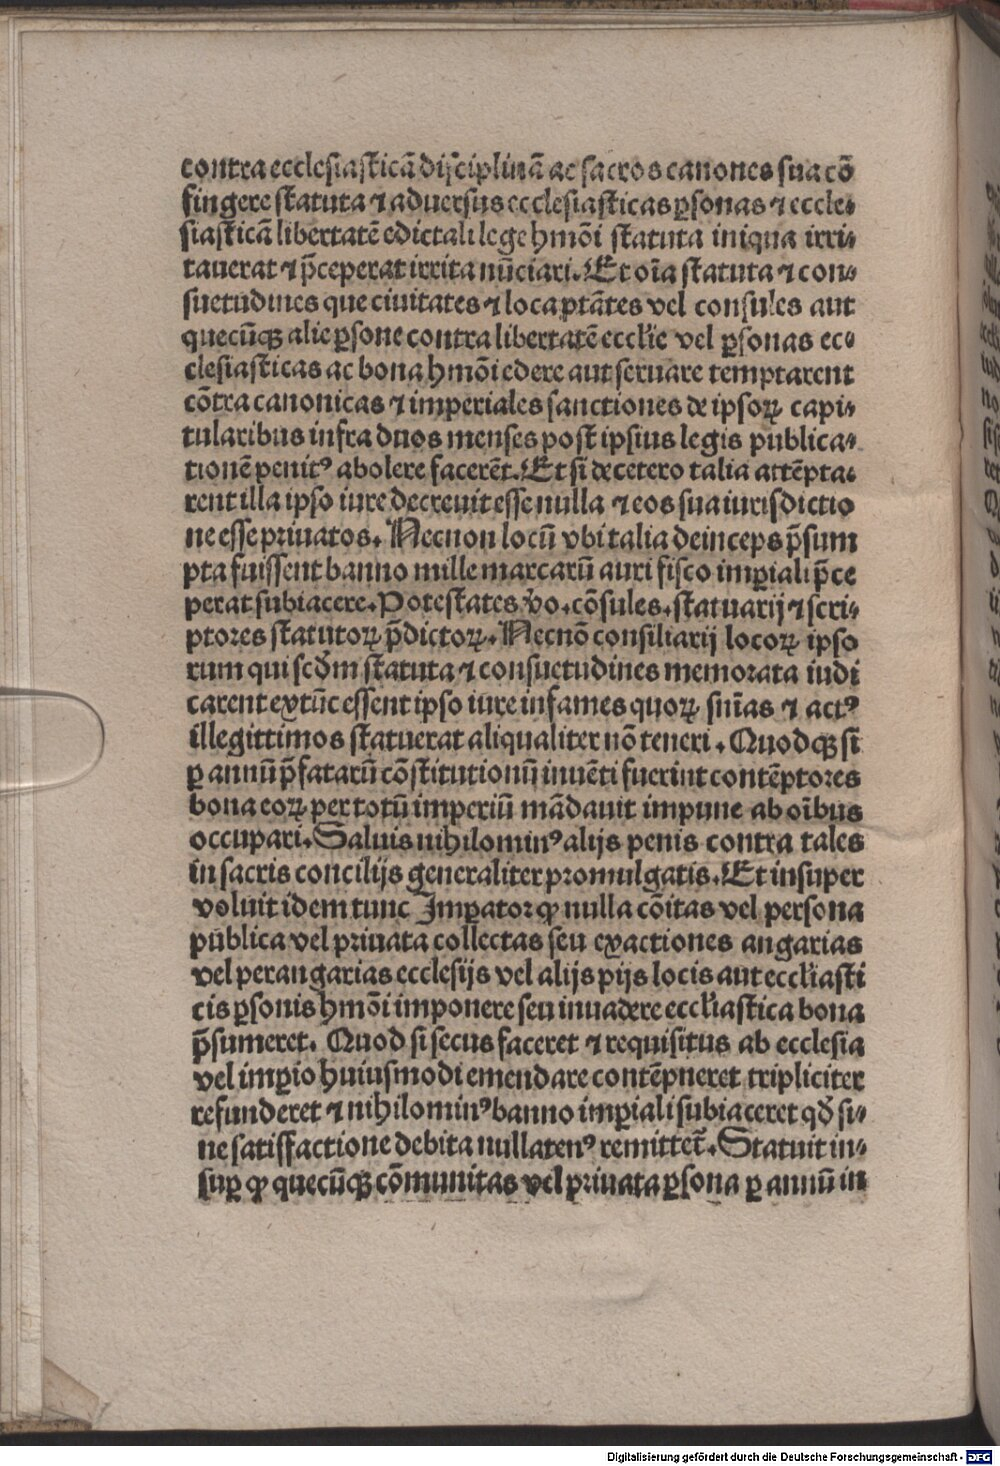 contra ecclesiasticā disciplinā ac sacros canones sua cō
fingere statuta ⁊ aduersus ecclesiasticas ꝑsonas ⁊ eccle⸗
siasticā libertatē edictali lege hmōi statuta iniqua irri⸗
tauerat ⁊ p̄ceperat irrita nūciari. Et oīa statuta ⁊ con⸗
suetudines que ciuitates ⁊ loca ptātes vel consules aut
quecūqꝫ alie ꝑsone contra libertatē eccl'ie vel ꝑsonas ec⸗
clesiasticas ac bona hmōi edere aut seruare temptarent
cōtra canonicas ⁊ imperiales sanctiones de ipsoꝝ capi⸗
tularibus infra duos menses post ipsius legis publica⸗
tionē penitꝰ abolere facerēt. Et si de cetero talia attēpta⸗
rent illa ipso iure decreuit esse nulla ⁊ eos sua iurisdictio
ne esse priuatos. Necnon locū vbi talia deinceps p̄sum
pta fuissent banno mille marcarū auri fisco imꝑiali p̄ce
perat subiacere. Potestates v̄o. cōsules. statuarij ⁊ scri⸗
ptores statutoꝝ p̄dictoꝝ. Necnō consiliarij locoꝝ ipso
rum qui scd̄m statuta ⁊ consuetudines memorata iudi
carent extūc essent ipso iure infames quoꝝ snīas ⁊ actꝰ
illegittimos statuerat aliqualiter nō teneri. Quodqꝫ si
ꝑ annū p̄fatarū cōstitutionū inuēti fuerint contēptores
bona eoꝝ per totū imperiū mādauit impune ab oībus
occupari. Saluis nihilominꝰ alijs penis contra tales
in sacris concilijs generaliter promulgatis. Et insuper
voluit idem tunc Imꝑator ꝙ nulla cōitas vel persona
publica vel priuata collectas seu exactiones angarias
vel perangarias ecclesijs vel alijs pijs locis aut eccl'iasti
cis ꝑsonis hmōi imponere seu inuadere eccl'iastica bona
p̄sumeret. Quod si secus faceret ⁊ requisitus ab ecclesia
vel imꝑio huiusmodi emendare contēpneret tripliciter
refunderet ⁊ nihilominꝰ banno imꝑiali subiaceret qd̄ si⸗
ne satisfactione debita nullatenꝰ remittet̄. Statuit in⸗
suꝑ ꝙ quecūqꝫ cōmunitas vel priuata ꝑsona ꝑ annū in
Digitalisierung gefördert durch die Deutsche Forschungsgemeinschaft - DFG